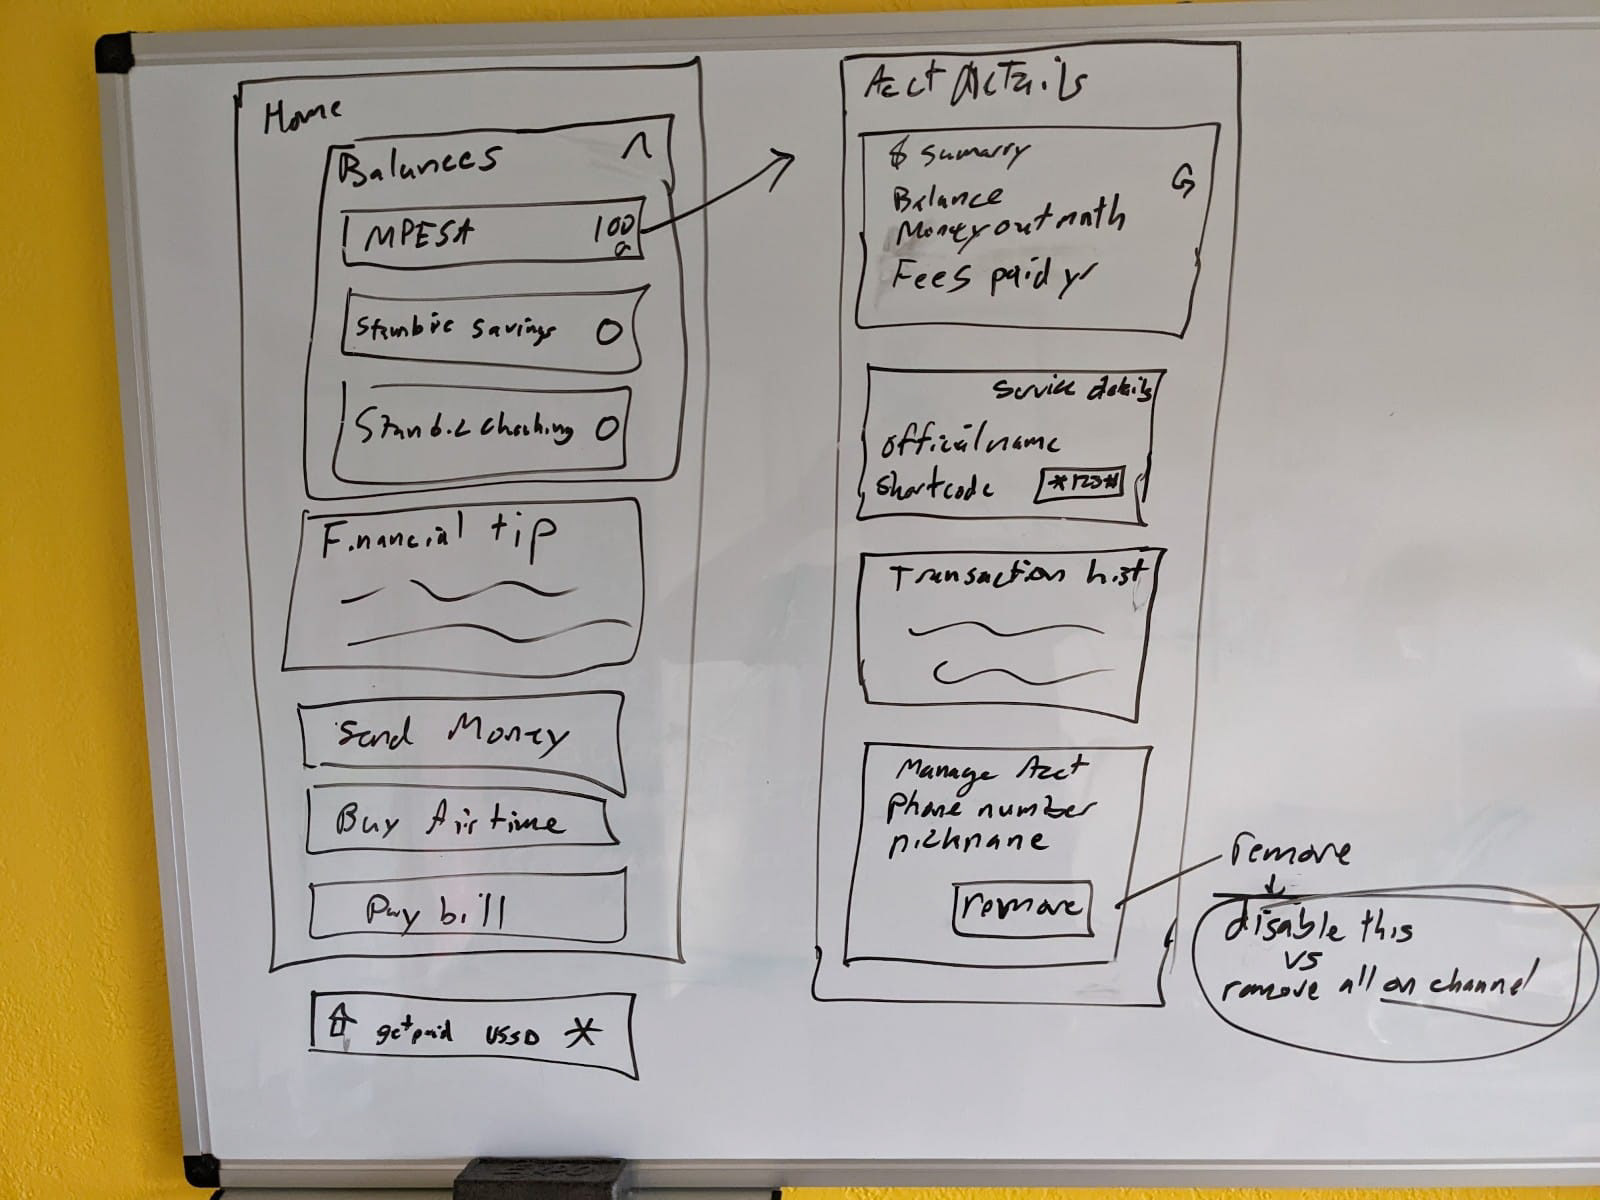 Home
Balances
MPESA 100
Stanbic savings O
Stanbic checking O
Financial tip
Send Money
Buy Airtime
Pay bill
get paid USSD *
Acct Details
$ sumarry
Balance
Money out mnth
Fees paid yr
Service details
official name
shortcode *123#
Transaction hist
Manage Acct
phone number
nickname
remove
remove
disable this
vs
remove all on channel